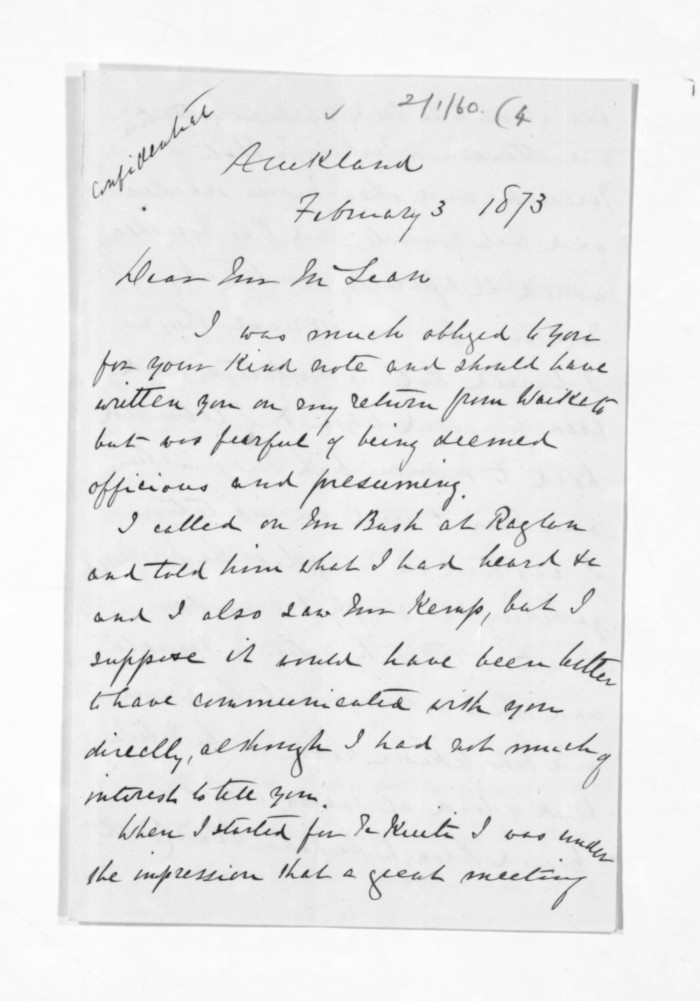 2/1/60. (4
Confidential
Auckland
February 3 1873
Dear Mr McLean
I was much obliged to you
for your kind note and should have
written you on my return from Waikato
but was fearful of being deemed
officious and presuming.
I called on Mr Bush at Raglan
and told him what I had heard &c
and I also saw Mr Kemp, but I
suppose it would have been better
to have communicated with you
directly, although I had not much of
interest to tell you.
When I started for Te Kuete I was under
the impression that a great meeting